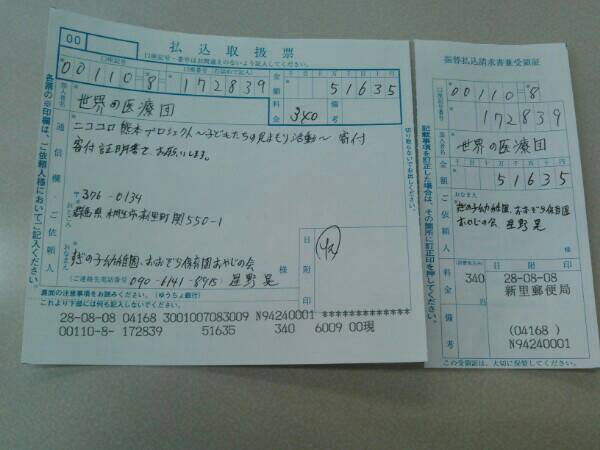 00
払込取扱票
口座記号
口座番号(右詰めで記入)
00110-8
172839
金額
千百十万千百十円
51635
加入者名
世界の医療団
料金
340
備考
通信欄
ニコニコ熊本プロジェクト〜子どもたちの見まもり活動〜 寄付
寄付証明書を、お願いします。
ご依頼人
〒376-0134
おところ
群馬県桐生市新里町関550-1
おなまえ
おおぞら保育園おやじの会
様
(ご連絡先電話番号 090-6141-8915)
星野晃
日附印
各票の※印欄は、ご依頼人様においてご記入ください。
切り取らないでお出しください。
裏面の注意事項をお読みください。(ゆうちょ銀行)
これより下部には何も記入しないでください。
28-08-08 04168 3001007083009 N94240001 **************
00110-8- 172839 51635 340 6009 00現
振替払込請求書兼受領証
口座記号番号
00110-8
172839
加入者名
世界の医療団
金額
千百十万千百十円
51635
ご依頼人
おなまえ
おおぞら保育園
おやじの会 星野晃
様
料金
340
円
日附印
28-08-08
新里郵便局
備考
(04168)
N94240001
記載事項を訂正した場合は、その箇所に訂正印を押してください。
この受領証は、大切に保管してください。